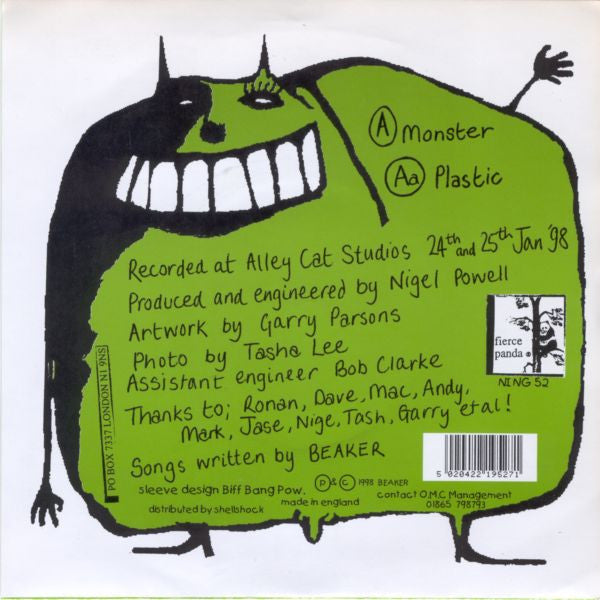 A Monster
Aa Plastic
Recorded at Alley Cat Studios 24th and 25th Jan '98
Produced and engineered by Nigel Powell
Artwork by Garry Parsons
Photo by Tasha Lee
Assistant engineer Bob Clarke
Thanks to; Ronan, Dave, Mac, Andy,
Mark, Jase, Nige, Tash, Garry et al!
Songs written by BEAKER
fierce
panda
NING 52
PO BOX 7337 LONDON N1 9NS
5 020422 195271
sleeve design Biff Bang Pow.
P & C 1998 BEAKER
made in england
contact O.M.C Management
01865 798793
distributed by shellshock